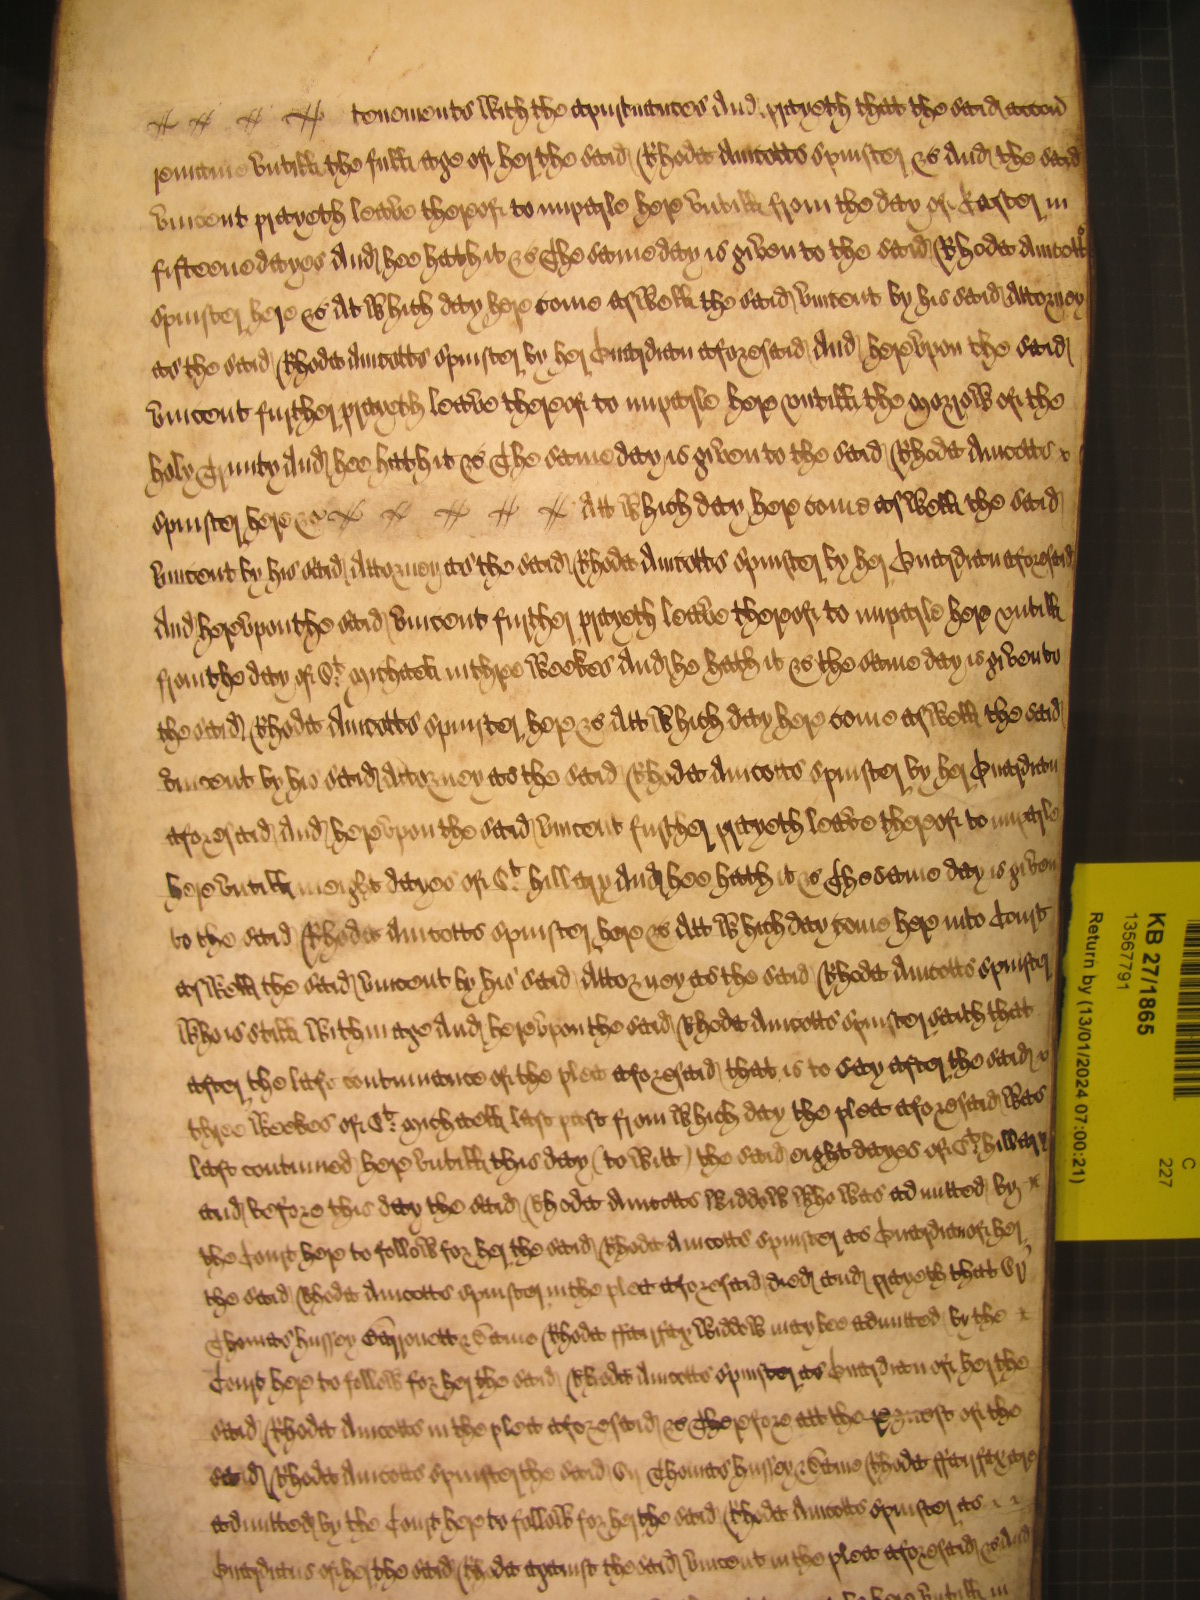 tenements with the apurtnances And prayeth that the said accon
remaine untill the full age of her the said Rhoda Amcotts spinster &c And the said
Vincent prayeth leave thereof to imparle here untill from the day of Easter in
fifteene dayes And hee hath it &c The same day is given to the said Rhoda Amcotts
spinster here &c At which day here come aswell the said Vincent by his said Attorney
as the said Rhoda Amcotts spinster by her Guardian aforesaid And hereupon the said
Vincent further prayeth leave thereof to imparle here untill the Morrow of the
holy Trinity And hee hath it &c The same day is given to the said Rhoda Amcotts
spinster here &c Att which day here come aswell the said
Vincent by his said Attorney as the said Rhoda Amcotts spinster by her Guardian aforesaid
And hereupon the said Vincent further prayeth leave thereof to imparle here untill
from the day of St. Michaell in three weekes And he hath it &c the same day is given to
the said Rhoda Amcotts spinster here &c Att which day here come aswell the said
Vincent by his said Attorney as the said Rhoda Amcotts spinster by her Guardian
aforesaid And hereupon the said Vincent further prayeth leave thereof to imparle
here untill in eight dayes of St. hillary And hee hath it &c The same day is given
to the said Rhoda Amcotts spinster here &c Att which day come here into Court
aswell the said Vincent by his said Attorney as the said Rhoda Amcotts spinster
who is still within age And hereupon the said Rhoda Amcotts spinster saith that
after the last continuance of the plea aforesaid that is to say after the said
three weekes of St. Michaell last past from which day the plea aforesaid was
last continued here untill this day (to witt) the said eight dayes of St. hillary
and before this day the said Rhoda Amcotts widdow who was admitted by
the Court here to follow for her the said Rhoda Amcotts spinster as Guardian of her
the said Rhoda Amcotts spinster in the plea aforesaid died and prayeth that Sr
Thomas hussey Barronett & Dame Rhoda ffairfax widdow may bee admitted by the
Court here to follow for her the said Rhoda Amcotts spinster as Guardian of her the
said Rhoda Amcotts in the plea aforesaid &c Therefore att the request of the
said Rhoda Amcotts spinster the said Sr Thomas hussey & Dame Rhoda ffairfax are
admitted by the Court here to follow for her the said Rhoda Amcotts spinster as
Guardians of her the said Rhoda against the said Vincent in the plea aforesaid &c And
here untill in
KB 27/1865
13567791
Return by (13/01/2024 07:00:21)
C
227